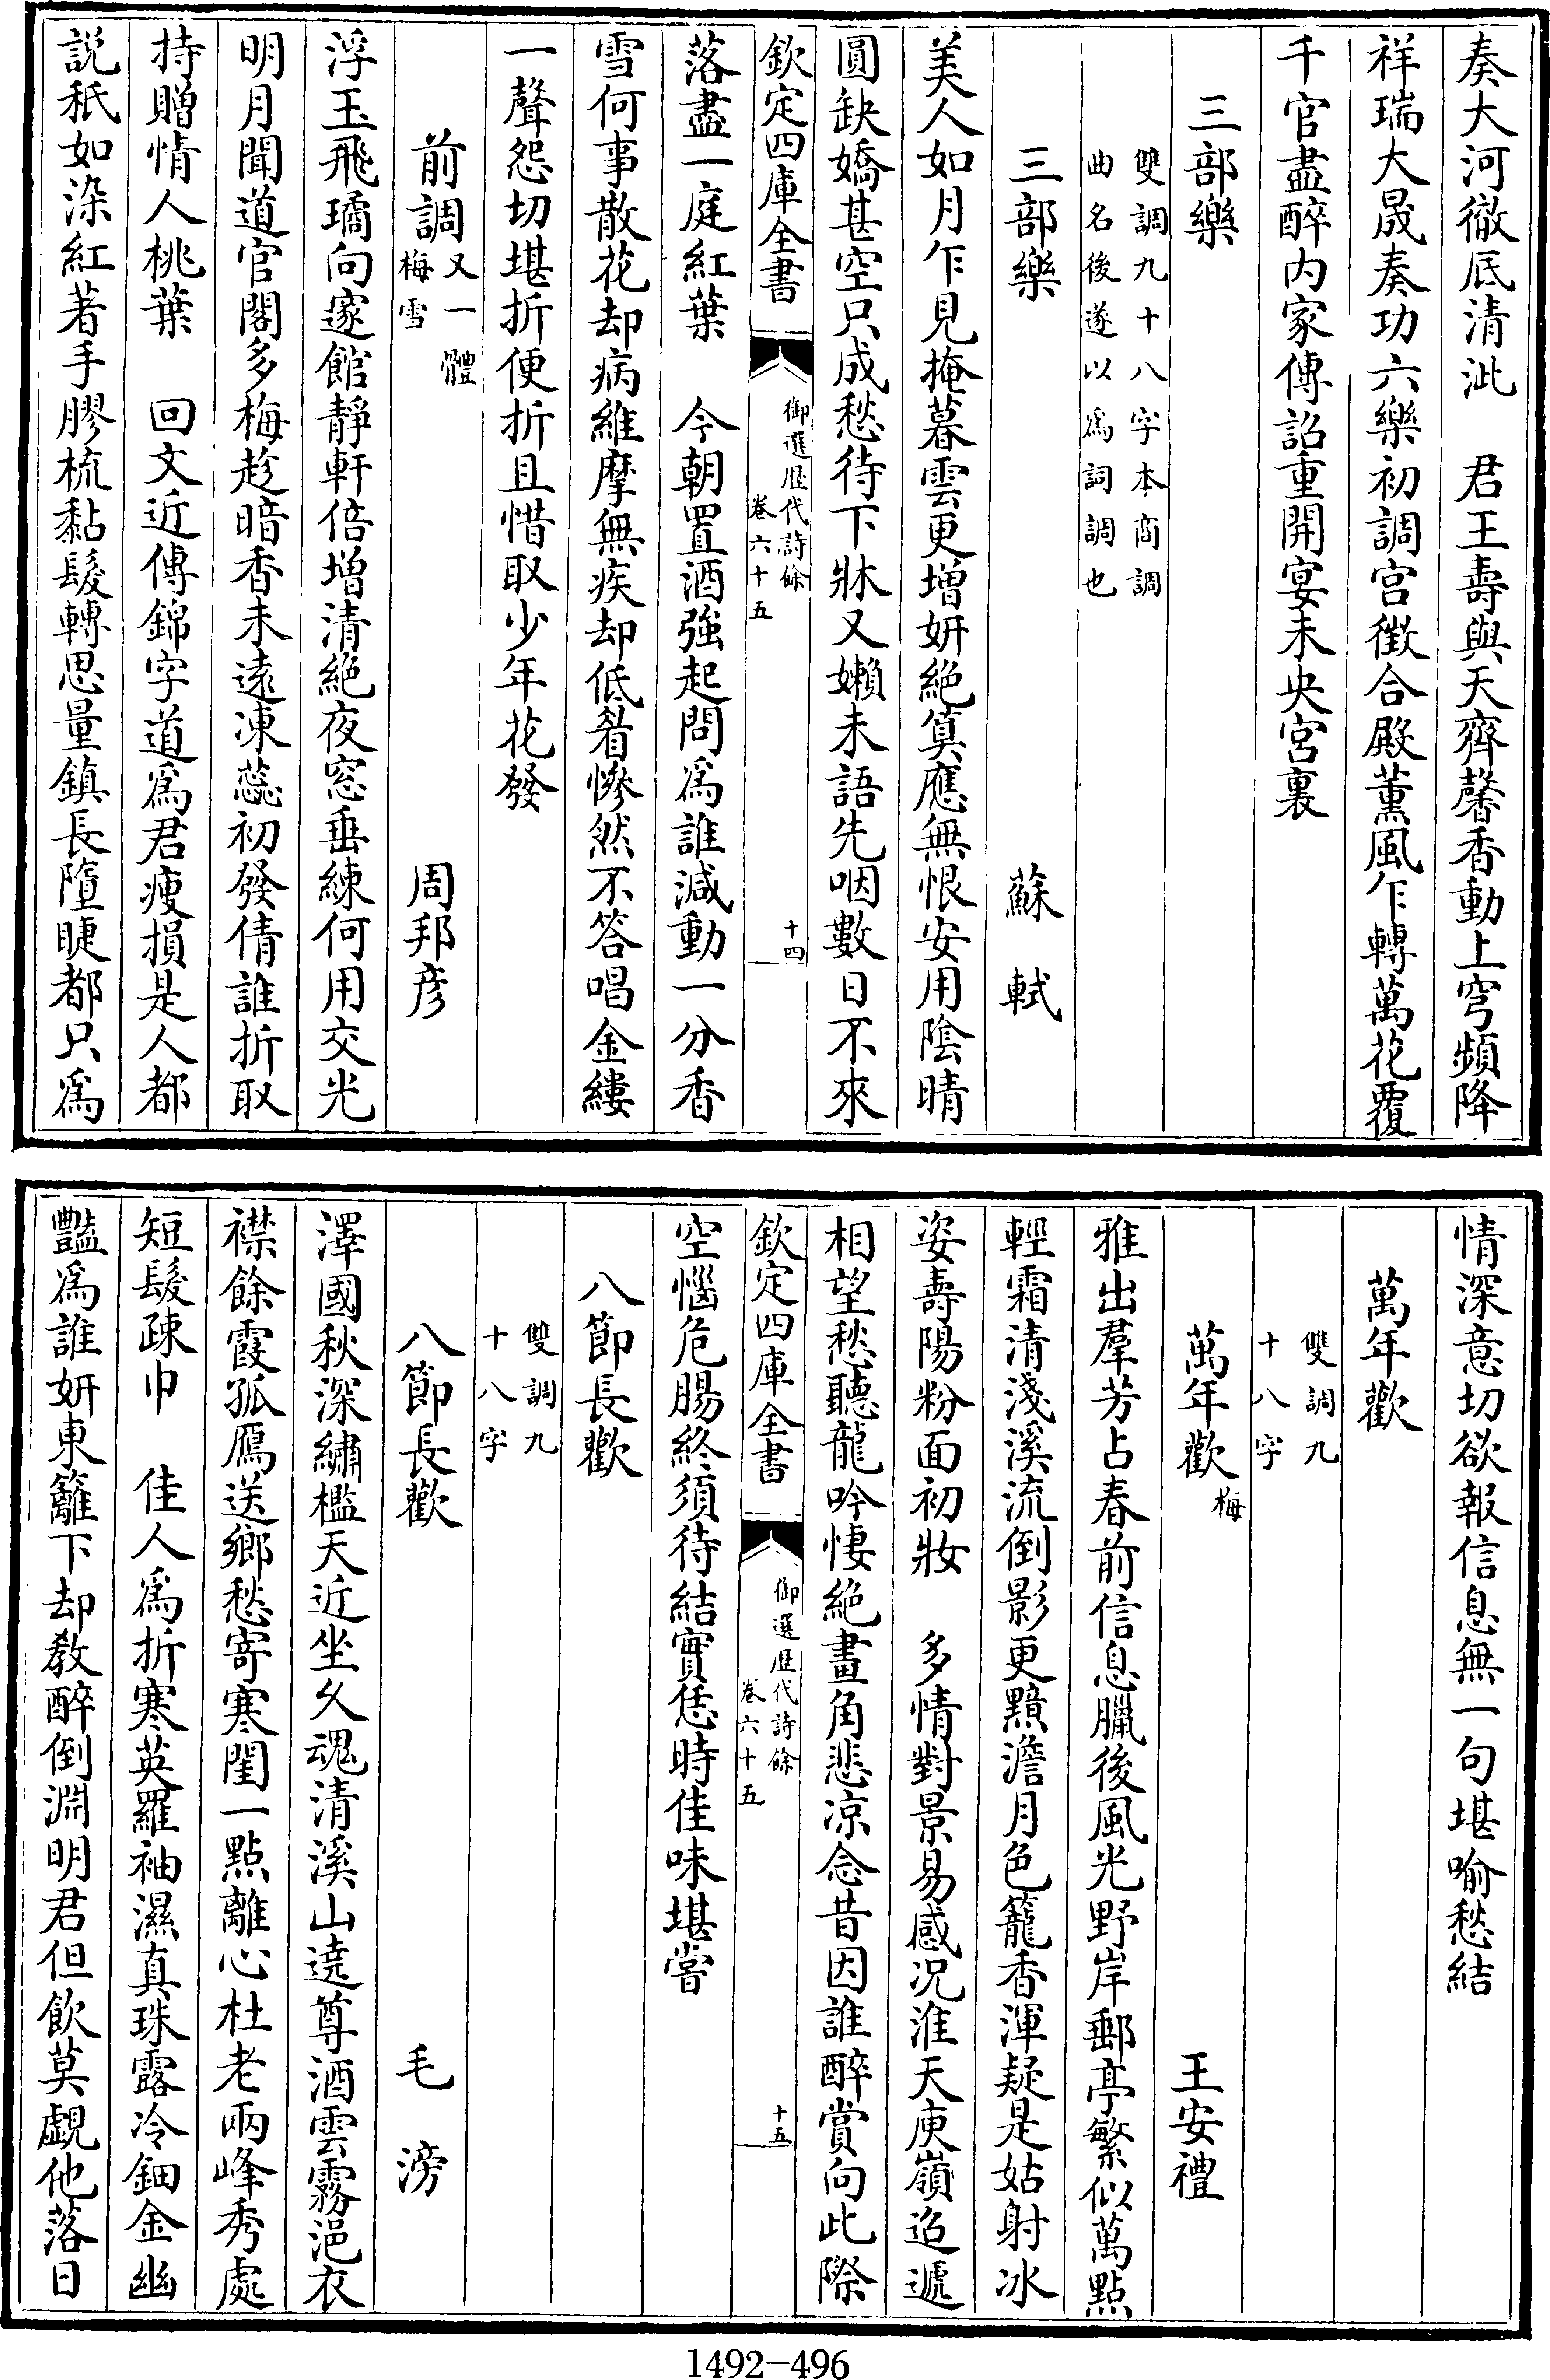 奏大河徹底清泚　君王壽與天齊馨香動上穹頻降
祥瑞大晟奏功六樂初調宫徵合殿薰風乍轉萬花覆
千官盡醉内家傳詔重開宴未央宫裏
三部樂
雙調九十八字本商調
曲名後遂以爲詞調也
三部樂　蘇軾
美人如月乍見掩暮雲更增妍絶算應無恨安用陰晴
圓缺嬌甚空只成愁待下牀又嬾未語先咽數日不來
欽定四庫全書
御選歷代詩餘
卷六十五
十四
落盡一庭紅葉　今朝置酒強起問爲誰減動一分香
雪何事散花却病維摩無疾却低眉慘然不答唱金縷
一聲怨切堪折便折且惜取少年花發
前調又一體
梅雪
周邦彦
浮玉飛瓊向邃館靜軒倍增清絶夜窓垂練何用交光
明月聞道官閣多梅趁暗香未遠凍蕊初發倩誰折取
持贈情人桃葉　回文近傳錦字道爲君瘦損是人都
説秖如染紅著手膠梳黏髮轉思量鎮長墮睫都只爲
情深意切欲報信息無一句堪喻愁結
萬年歡
雙調九
十八字
萬年歡梅　王安禮
雅出羣芳占春前信息臘後風光野岸郵亭繁似萬點
輕霜清淺溪流倒影更黯澹月色籠香渾疑是姑射冰
姿壽陽粉面初妝　多情對景易感况淮天庾嶺迢遞
相望愁聽龍吟悽絶畫角悲凉念昔因誰醉賞向此際
欽定四庫全書
御選歷代詩餘
卷六十五
十五
空惱危腸終須待結實恁時佳味堪嘗
八節長歡
雙調九
十八字
八節長歡　毛滂
澤國秋深繡檻天近坐久魂清溪山遶尊酒雲霧浥衣
襟餘霞孤鴈送鄉愁寄寒閨一點離心杜老兩峰秀處
短髮疎巾　佳人爲折寒英羅袖濕真珠露冷鈿金幽
豔爲誰妍東籬下却教醉倒淵明君但飲莫覷他落日
1492-496